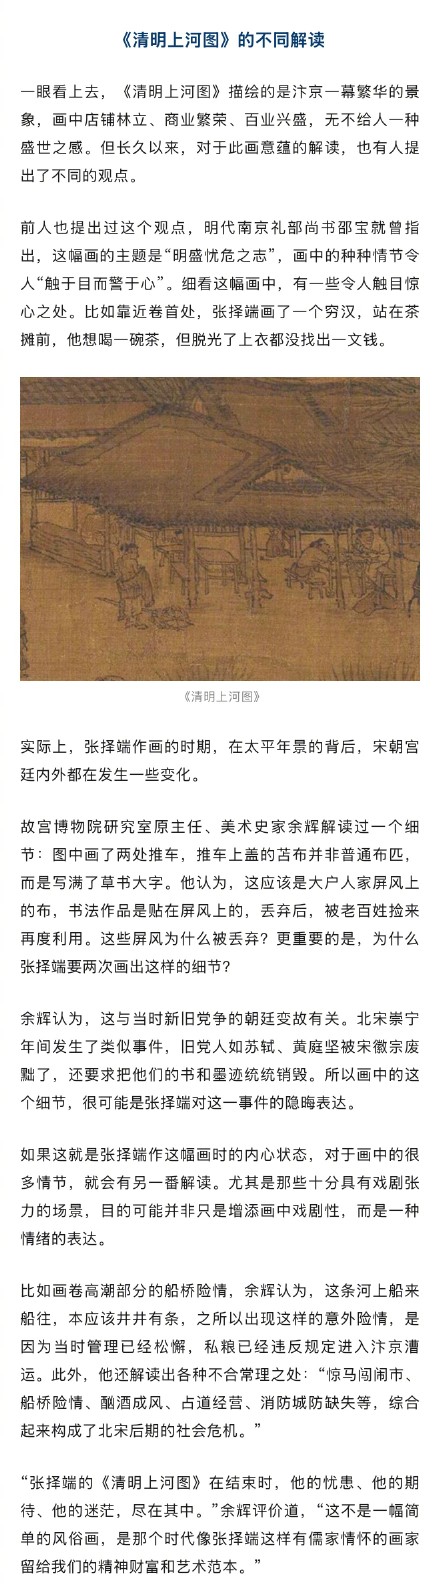 《清明上河图》的不同解读
一眼看上去，《清明上河图》描绘的是汴京一幕繁华的景
象，画中店铺林立、商业繁荣、百业兴盛，无不给人一种
盛世之感。但长久以来，对于此画意蕴的解读，也有人提
出了不同的观点。
前人也提出过这个观点，明代南京礼部尚书邵宝就曾指
出，这幅画的主题是“明盛忧危之志”，画中的种种情节令
人“触于目而警于心”。细看这幅画中，有一些令人触目惊
心之处。比如靠近卷首处，张择端画了一个穷汉，站在茶
摊前，他想喝一碗茶，但脱光了上衣都没找出一文钱。
《清明上河图》
实际上，张择端作画的时期，在太平年景的背后，宋朝宫
廷内外都在发生一些变化。
故宫博物院研究室原主任、美术史家余辉解读过一个细
节：图中画了两处推车，推车上盖的苫布并非普通布匹，
而是写满了草书大字。他认为，这应该是大户人家屏风上
的布，书法作品是贴在屏风上的，丢弃后，被老百姓捡来
再度利用。这些屏风为什么被丢弃？更重要的是，为什么
张择端要两次画出这样的细节？
余辉认为，这与当时新旧党争的朝廷变故有关。北宋崇宁
年间发生了类似事件，旧党人如苏轼、黄庭坚被宋徽宗废
黜了，还要求把他们的书和墨迹统统销毁。所以画中的这
个细节，很可能是张择端对这一事件的隐晦表达。
如果这就是张择端作这幅画时的内心状态，对于画中的很
多情节，就会有另一番解读。尤其是那些十分具有戏剧张
力的场景，目的可能并非只是增添画中戏剧性，而是一种
情绪的表达。
比如画卷高潮部分的船桥险情，余辉认为，这条河上船来
船往，本应该井井有条，之所以出现这样的意外险情，是
因为当时管理已经松懈，私粮已经违反规定进入汴京漕
运。此外，他还解读出各种不合常理之处：“惊马闯闹市、
船桥险情、酗酒成风、占道经营、消防城防缺失等，综合
起来构成了北宋后期的社会危机。”
“张择端的《清明上河图》在结束时，他的忧患、他的期
待、他的迷茫，尽在其中。”余辉评价道，“这不是一幅简
单的风俗画，是那个时代像张择端这样有儒家情怀的画家
留给我们的精神财富和艺术范本。”